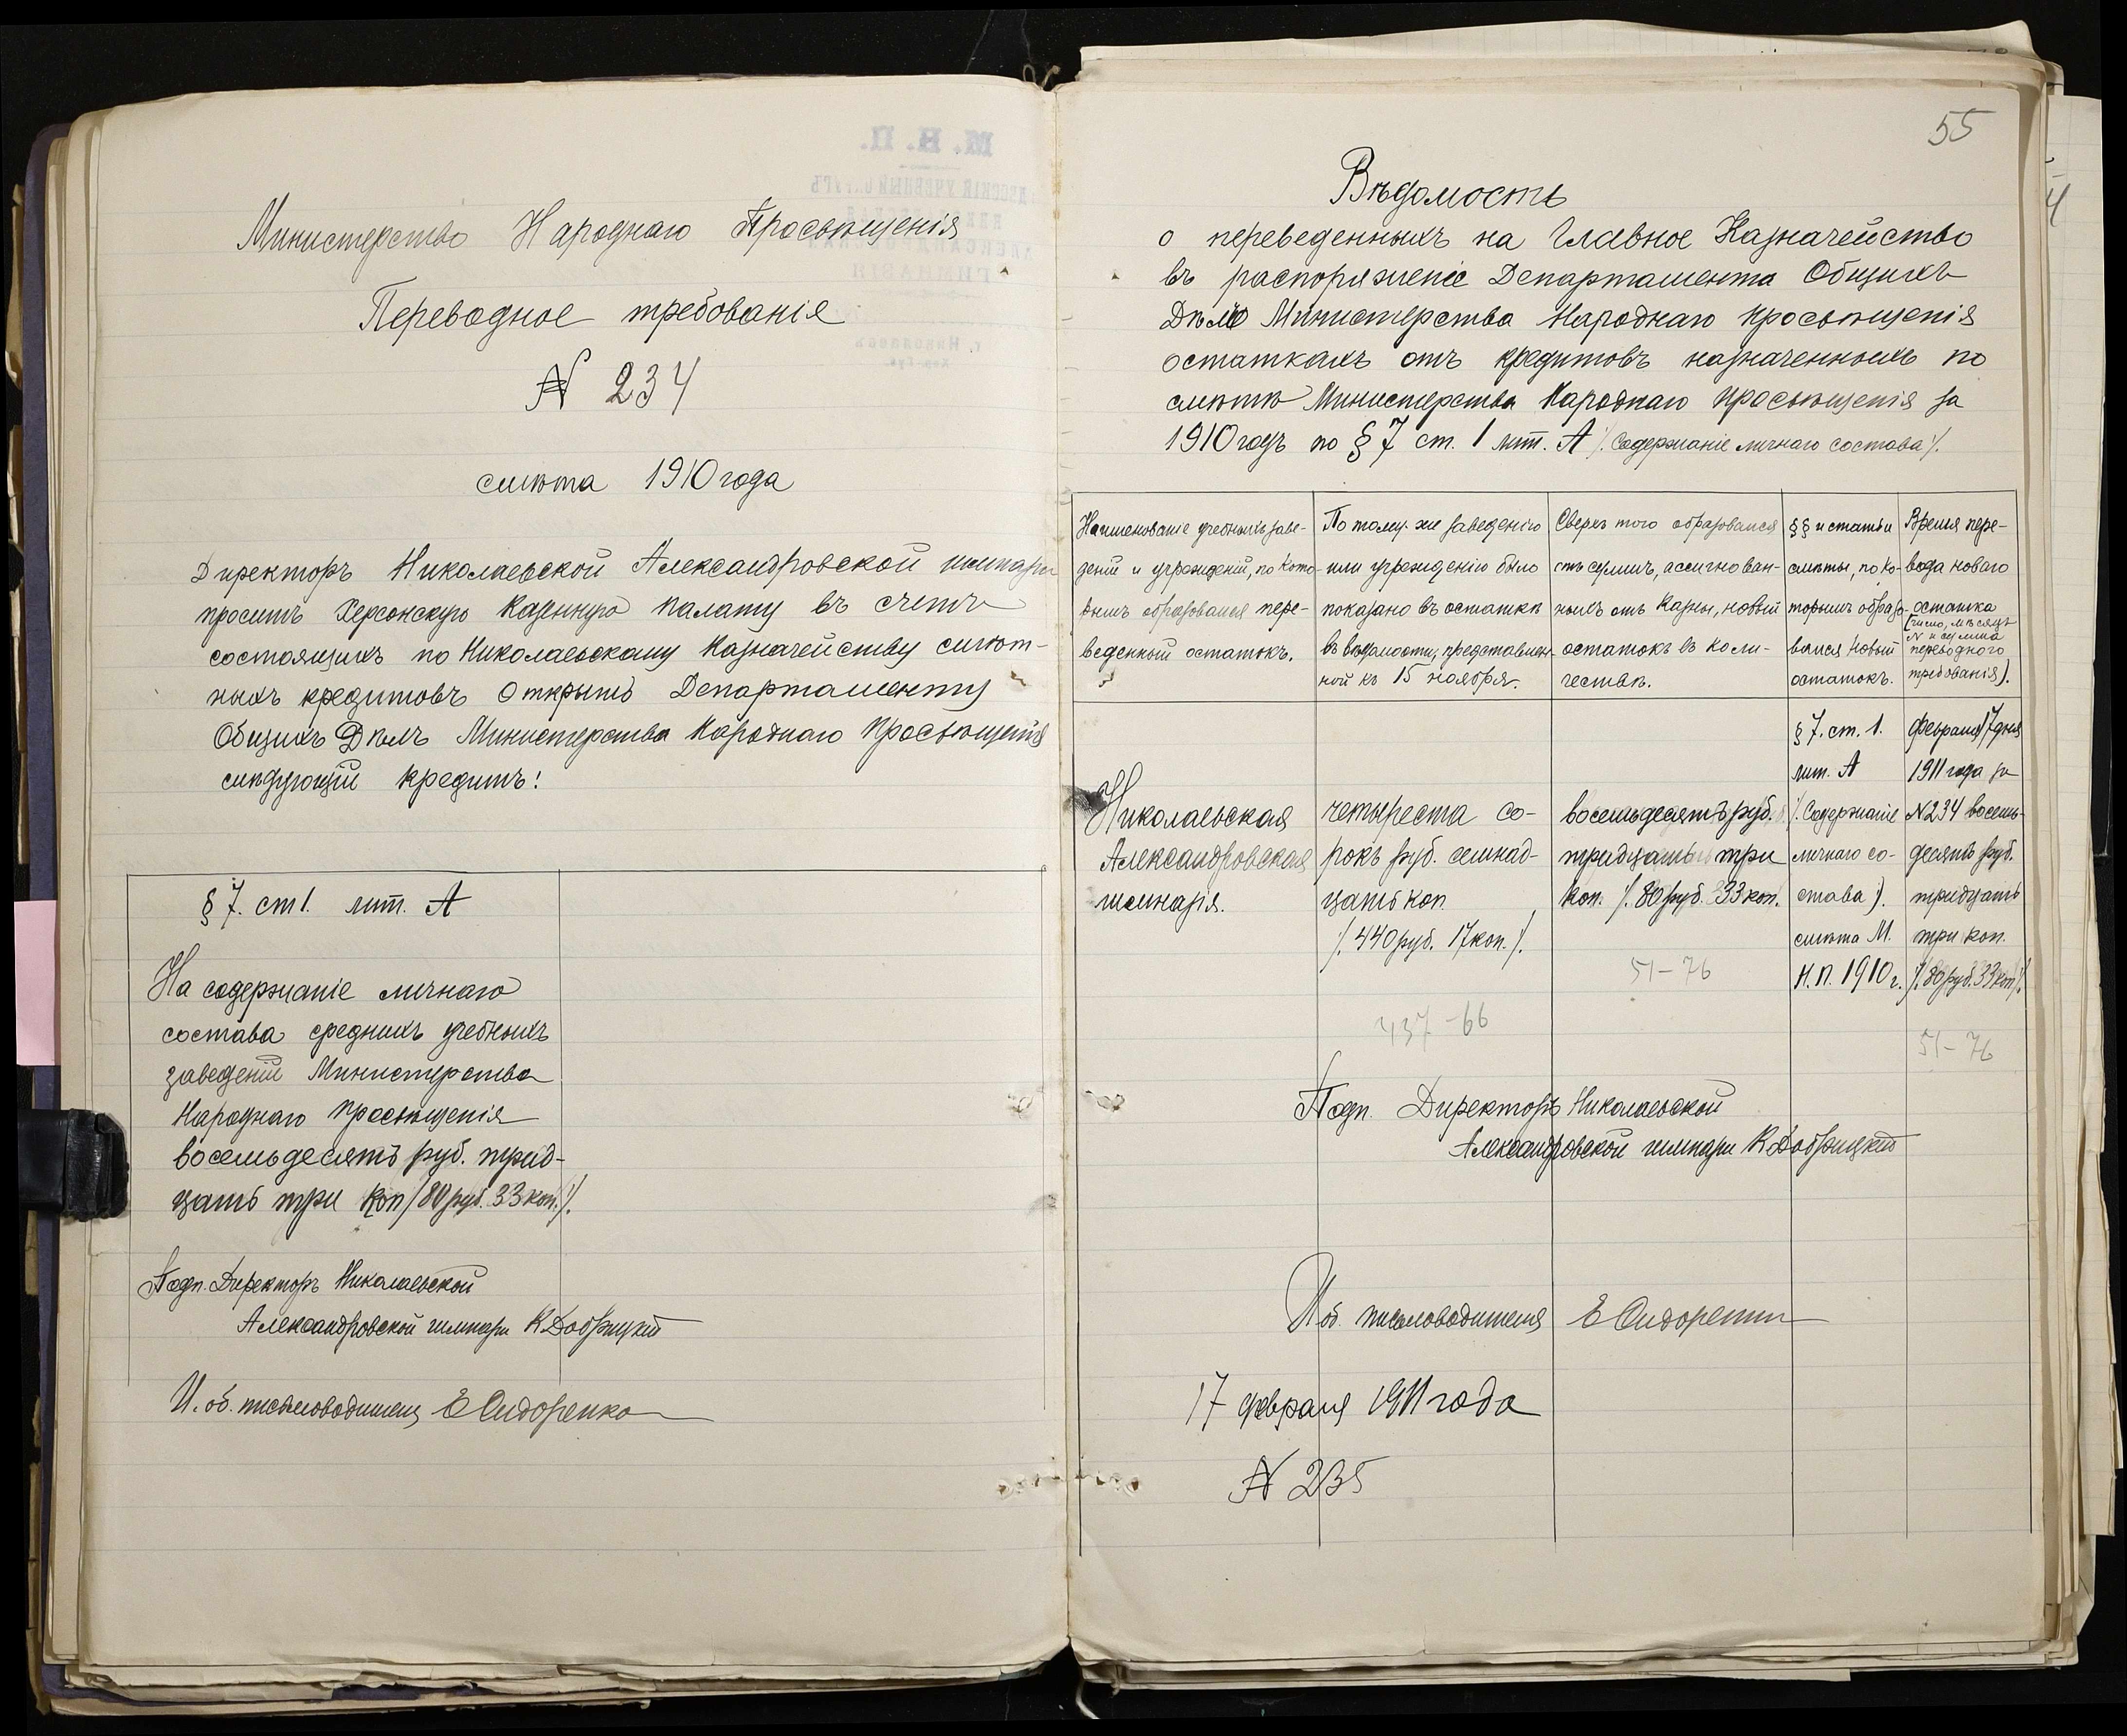 Министерство Народнаго Просвѣщенія
Переводное требованіе
№ 234
смѣта 1910 года
Директоръ Николаевской Александровской гимназіи
проситъ Херсонскую Казенную Палату въ счетъ
состоящихъ по Николаевскому Казначейству смѣт-
ныхъ кредитовъ открыть Департаменту
Общихъ Дѣлъ Министерства Народнаго Просвѣщенія
слѣдующій кредитъ:
§ 7. ст 1. лит. А
На содержаніе личнаго
состава среднихъ учебныхъ
заведеній Министерства
Народнаго Просвѣщенія
восемьдесятъ руб. трид-
цать три коп /80 руб. 33 коп./.
Подп. Директоръ Николаевской
Александровской гимназіи К Добрицкій
И. об. письмоводителя Е Сидоренко
55
Вѣдомость
о переведенныхъ на Главное Казначейство
въ распоряженіе Департамента Общихъ
Дѣлъ Министерства Народнаго Просвѣщенія
остаткахъ отъ кредитовъ назначенныхъ по
смѣтѣ Министерства Народнаго Просвѣщенія за
1910 годъ по § 7 ст. 1 лит. А /. Содержаніе личнаго состава /.
Наименованіе учебныхъ заве-
деній и учрежденій, по кото-
рымъ образовался пере-
веденный остатокъ.
По тому-же заведенію
или учрежденію было
показано въ остаткѣ
въ вѣдомости, представлен-
ной къ 15 ноября.
Сверхъ того образовался
отъ суммъ, ассигнован-
ныхъ отъ казны, новый
остатокъ въ коли-
чествѣ.
§§ и статьи
смѣты, по ко-
торымъ образо-
вался новый
остатокъ.
Время пере-
вода новаго
остатка
(число, мѣсяцъ
№ и сумма
переводного
требованія).
Николаевская
Александровская
гимназія.
четыреста со-
рокъ руб. семнад-
цать коп.
/. 440 руб. 17 коп. /.
437-66
восемьдесятъ руб.
тридцать три
коп. /. 80 руб. 33 коп.
51-76
§ 7. ст. 1.
лит. А
/. Содержаніе
личнаго со-
става ).
смѣта М.
Н. П. 1910 г.
Февраля 17 дня
1911 года за
№ 234 восемь-
десятъ руб.
тридцать
три коп.
/. 80 руб. 33 коп /.
51-76
Подп. Директоръ Николаевской
Александровской гимназіи К Добрицкій
И об. письмоводителя Е Сидоренко
17 февраля 1911 года
№ 235